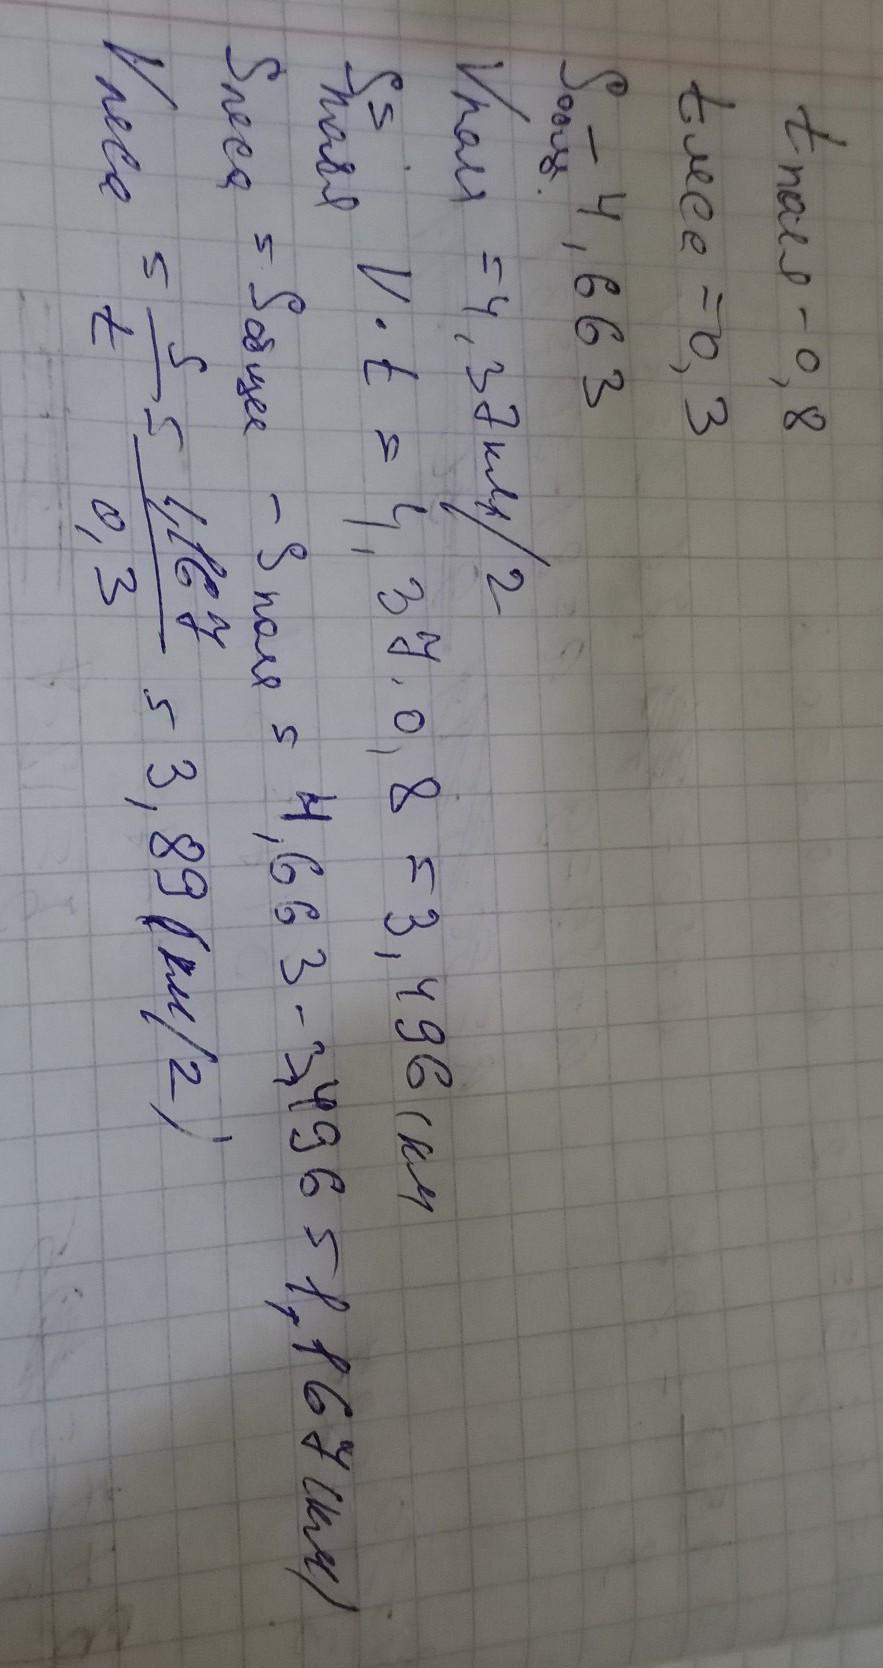 t поля - 0,8
t леса = 0,3
S общ. - 4,663
V поля = 4,37 км/ч
S поля = V · t = 4,37 · 0,8 = 3,496 (км
S леса = S общее - S поля = 4,663 - 3,496 = 1,167 (км)
V леса = S/t = 1,167/0,3 = 3,89 (км/ч)